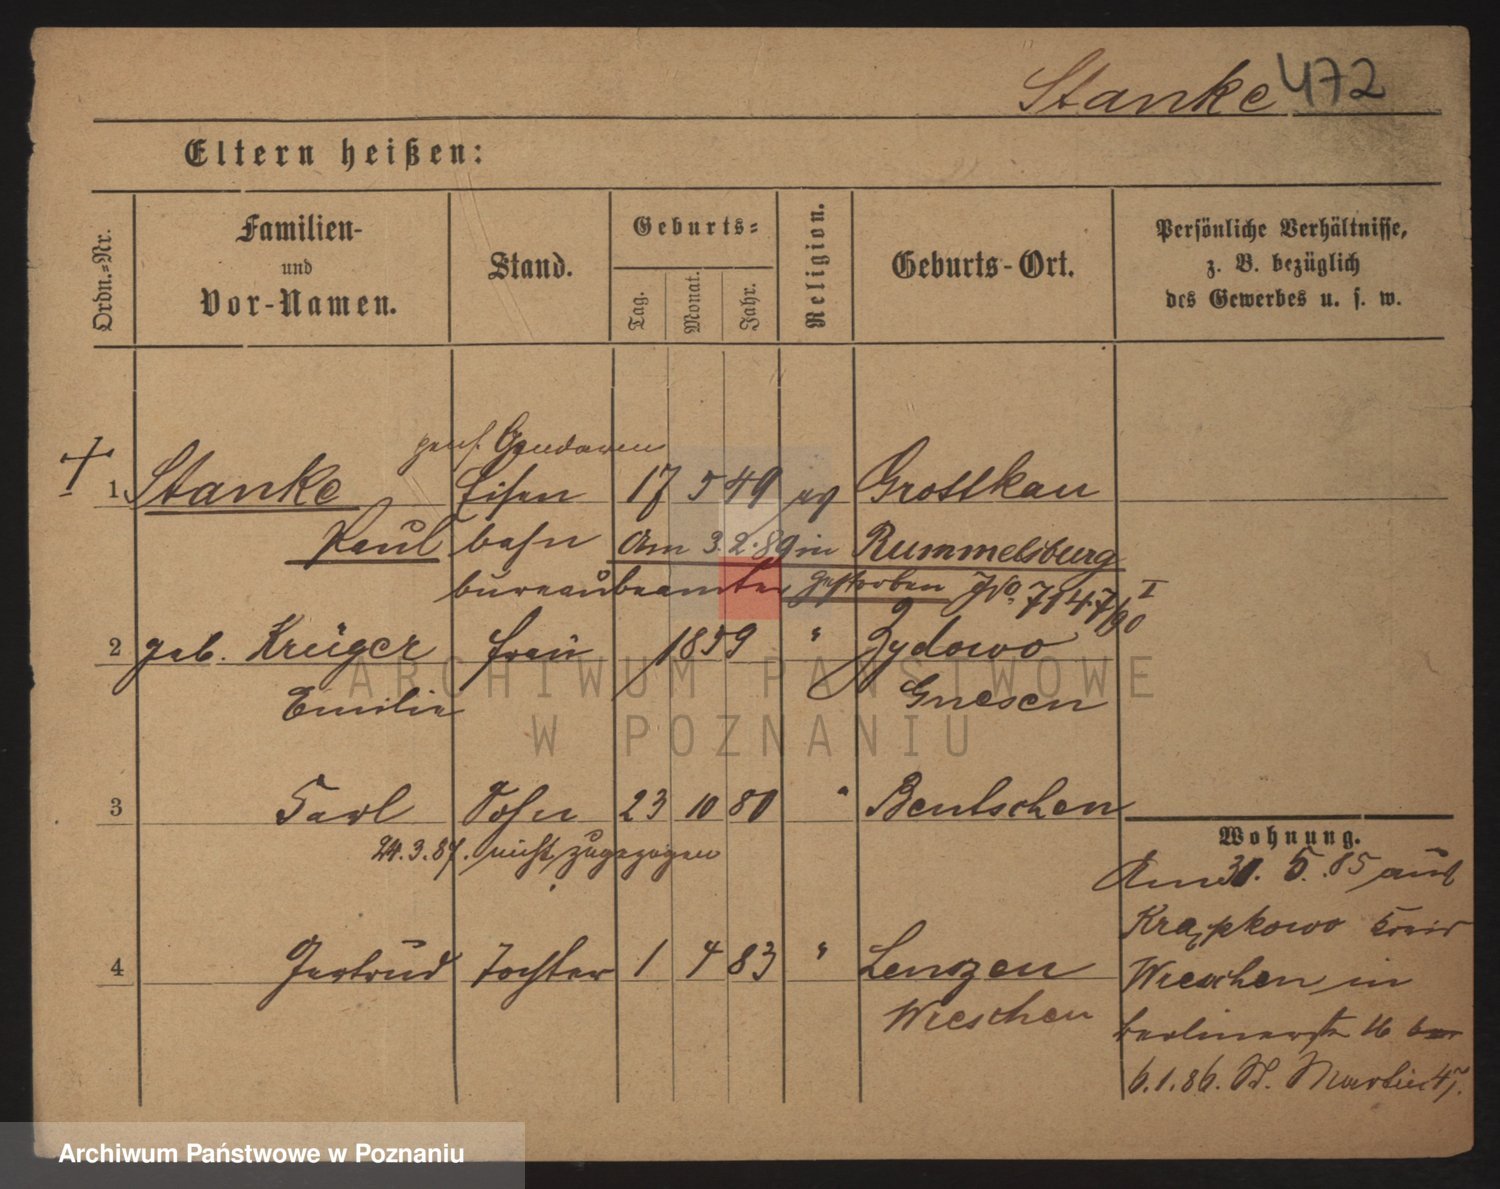 Stanke 472
Eltern heißen:
Ordn.=Nr.
Familien-
und
Vor-Namen.
Stand.
Geburts=
Tag.
Monat.
Jahr.
Religion.
Geburts-Ort.
Persönliche Verhältnisse,
z. B. bezüglich
des Gewerbes u. s. w.
pens. Gendarm
1 Stanke Eisen 17 5 49 ev Grottkau
Paul bahn Am 3.2.89 in Rummelsburg
bureaubeamter gestorben No. 7147/90 I
2 geb. Krüger Frau 1859 " Zydowo
Emilie Gnesen
3 Carl Sohn 23 10 80 " Bentschen
24.3.87. nicht zugezogen
4 Gertrud Tochter 1 4 83 " Lenzen
Wreschen
Wohnung.
Am 31. 5. 85 aus
Krąpkowo Kreis
Wreschen in
Berlinerstr 16
6.1.86. St. Martin 47.
ARCHIWUM PAŃSTWOWE
W POZNANIU
Archiwum Państwowe w Poznaniu